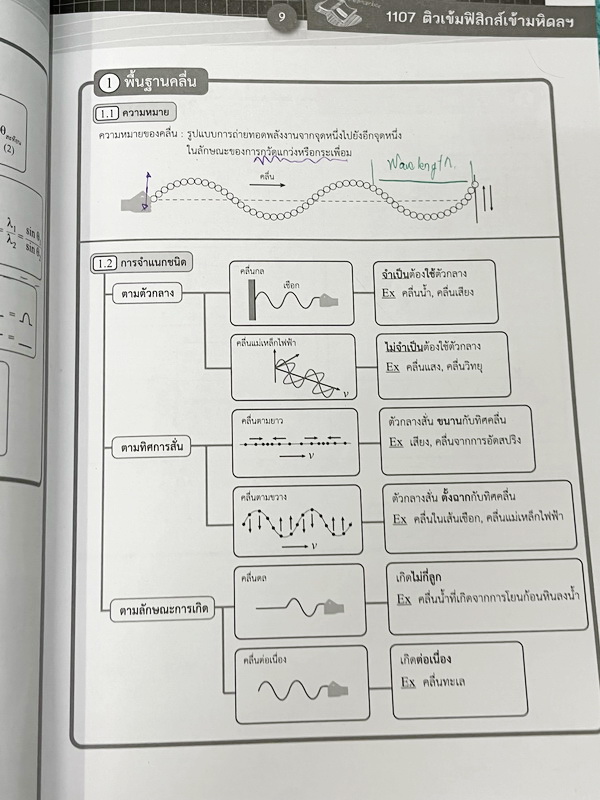 9
1107 ติวเข้มฟิสิกส์เข้ามหิดลฯ
θ
(2)
= λ₁/λ₂ = sin θ / sin θ
1 พื้นฐานคลื่น
1.1 ความหมาย
ความหมายของคลื่น : รูปแบบการถ่ายทอดพลังงานจากจุดหนึ่งไปยังอีกจุดหนึ่ง
ในลักษณะของการกวัดแกว่งหรือกระเพื่อม
คลื่น
1.2 การจำแนกชนิด
ตามตัวกลาง
คลื่นกล
เชือก
จำเป็นต้องใช้ตัวกลาง
Ex คลื่นน้ำ, คลื่นเสียง
คลื่นแม่เหล็กไฟฟ้า
v
ไม่จำเป็นต้องใช้ตัวกลาง
Ex คลื่นแสง, คลื่นวิทยุ
ตามทิศการสั่น
คลื่นตามยาว
v
ตัวกลางสั่น ขนานกับทิศคลื่น
Ex เสียง, คลื่นจากการอัดสปริง
คลื่นตามขวาง
v
ตัวกลางสั่น ตั้งฉากกับทิศคลื่น
Ex คลื่นในเส้นเชือก, คลื่นแม่เหล็กไฟฟ้า
ตามลักษณะการเกิด
คลื่นดล
เกิดไม่กี่ลูก
Ex คลื่นน้ำที่เกิดจากการโยนก้อนหินลงน้ำ
คลื่นต่อเนื่อง
เกิดต่อเนื่อง
Ex คลื่นทะเล